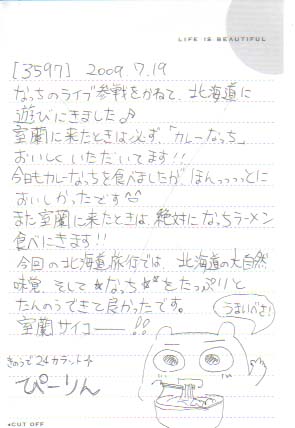 LIFE IS BEAUTIFUL
[3597] 2009.7.19
なっちのライブ参戦をかねて、北海道に
遊びにきました♪
室蘭に来たときは必ず、「カレーなっち」
おいしくいただいてます!!
今日もカレーなっちを食べましたが、ほんっっっっとに
おいしかったです^^
また室蘭に来たときは、絶対になっちラーメン
食べにきます!!
今回の北海道旅行では、北海道の大自然
味覚、そして★なっち★をたっぷりと
たんのうできて良かったです。
室蘭サイコーーー!!
うまいべさ!
きのうで24カラット+
ぴーりん
◂CUT OFF